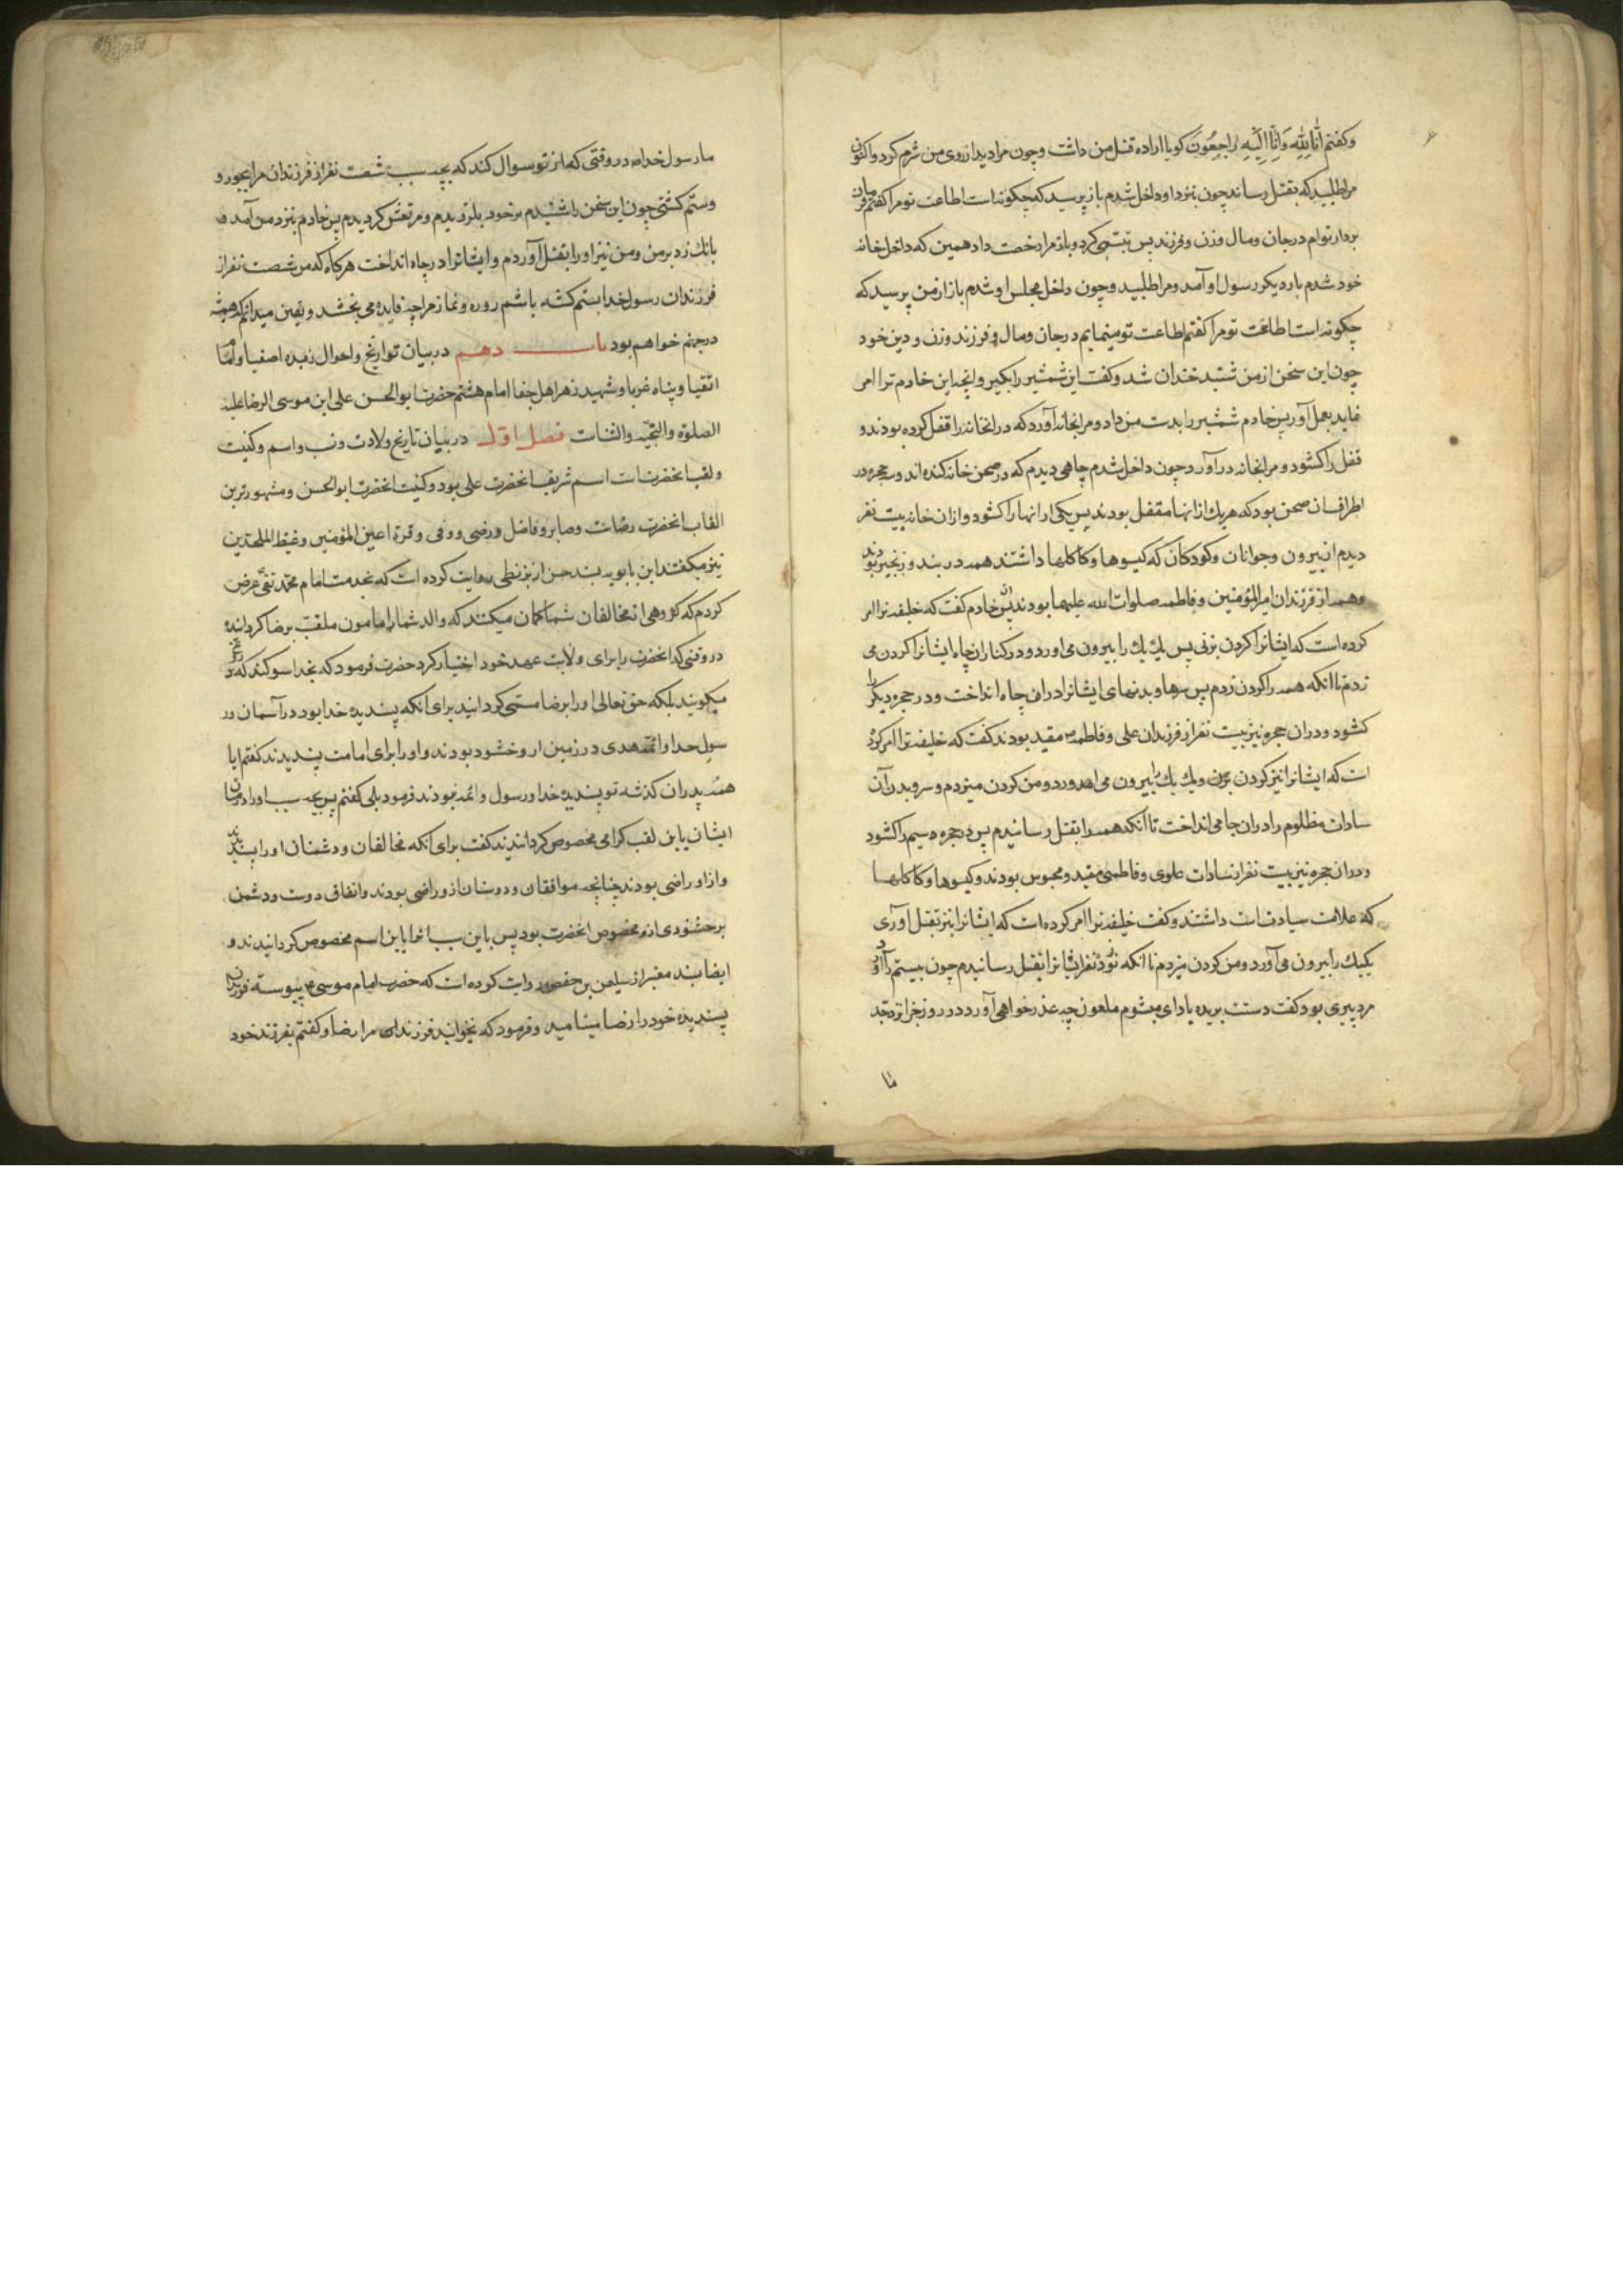 وکفتم اِنّا لِلّهِ وَاِنّا اِلَیْهِ راجِعُونَ کویا اراده قتل من داشت وچون مرا دید از روی من شرم کرد واکنون
مرا طلبید که بقتل رساند چون بنزد او داخل شدم باز پرسید که چکونه است اطاعت تو مرا کفتم فرمان
بردار توام در جان ومال وزن وفرزند پس تبسمی کرد وباز مرا رخصت داد همین که داخل خانه
خود شدم بار دیکر رسول او آمد ومرا طلبید وچون داخل مجلس او شدم باز از من پرسید که
چکونه است اطاعت تو مرا کفتم اطاعت تو مینمایم در جان ومال وفرزند وزن ودین خود
چون این سخن از من شنید خندان شد وکفت این شمشیر را بکیر وانچه این خادم ترا امر
فاید بعمل آور پس خادم شمشیر را بدست من داد ومرا بخانه آورد که در انخانه را قفل کرده بودند و
قفل را کشود ومرا بخانه در آورد چون داخل شدم چاهی دیدم که در صحن خانه کنده اند وسه حجره در
اطراف ان صحن بود که هر یك از انها مقفل بودند پس یکی از انها را کشود و از ان خانه بیست نفر
دیدم از پیرون وجوانان وکودکان که کیسوها وکاکلها داشتند همه در بند وزنجیر بودند
وهمه از فرزندان امیر المؤمنین وفاطمه صلوات الله علیهما بودند پس خادم کفت که خلیفه ترا امر
کرده است که ایشانرا کردن بزنی پس یك یك را بیرون می اورد ودر کنار ان چاه ایشانرا کردن می
زدم تا انکه همه را کردن زدم پس سرها وبدنهای ایشانرا در ان چاه انداخت ودر حجره دیکر را
کشود ودر ان حجره نیز بیست نفر از فرزندان علی وفاطمه مقید بودند کفت که خلیفه ترا امر کرد
است که ایشانرا نیز کردن بزن ویك یك را بیرون می اورد ومن کردن میزدم وسر وبدن آن
سادات مظلوم را در ان چا می انداخت تا آنکه همه را بقتل رسانیدم پس در حجره سیم را کشود
ودر ان حجره نیز بیست نفر از سادات علوی وفاطمی مقید ومحبوس بودند وکیسوها وکاکلها
که علامت سیادتست داشتند وکفت خلیفه ترا امر کرده است که ایشانرا نیز بقتل اوری
یکیك را بیرون می آورد ومن کردن میزدم تا انکه نوزده نفر ایشانرا بقتل رسانیدم چون بیستم را آورد
مرد پیری بود کفت دستت بریده باد ای میشوم ملعون چه عذر خواهی آورد در روز جزا نزد جد
ما
ما رسول خدا در وقتی که از تو سوال کند که بچه سبب شصت نفر از فرزندان مرا بجور و
وستم کشتی چون این سخن را شنیدم بر خود بلرزیدم ومرتعش کردیدم پس خادم بنزد من آمد و
بانك زد بر من ومن نیز او را بقتل آوردم وایشانرا در چاه انداخت هر کاه که من شصت نفر از
فرزندان رسول خدا بستم کشته باشم روزه ونماز مرا چه فایده می بخشد ویقین میدانم که همیشه
در جهنم خواهم بود باب دهم در بیان تواریخ واحوال زبده اصفیا وامام
اتقیا وپناه غربا وشهید زهر اهل جفا امام هشتم حضرت ابو الحسن علی ابن موسی الرضا علیه
الصلوة والتحیة والثنات فصل اوّل در بیان تاریخ ولادت ونسب واسم وکنیت
ولقب انحضرتست اسم شریف انحضرت علی بود وکنیت انحضرت ابو الحسن ومشهورترین
القاب انحضرت رضاست وصابر وفاضل ورضی ووفی وقرة اعین المؤمنین وغیظ الملحدین
نیز میکفتند ابن بابویه بسند حسن از بزنطی روایت کرده است که بخدمت امام محمد تقی عرض
کردم که کروهی از مخالفان شما کمان میکنند که والد شما را مامون ملقب برضا کردانید
در وقتی که انحضرت را برای ولایت عهد خود اختیار کرد حضرت فرمود که بخدا سوکند که دروغ
میکویند بلکه حق تعالی او را برضا مسمی کردانید برای آنکه پسندیده خدا بود در آسمان ور
سول خدا وائمه هدی در زمین از او خشنود بودند واو را برای امامت پسندیدند کفتم ایا
همه پدران کذشته تو پسندیده خدا ورسول وائمه نبودند فرمود بلی کفتم پس بچه سبب او را در میان
ایشان باین لقب کرامی مخصوص کردانیدند کفت برای آنکه مخالفان ودشمنان او را پسندیدند
واز او راضی بودند چنانچه موافقان ودوستان از و راضی بودند واتفاق دوست ودشمن
بر خشنودی از و مخصوص انحضرت بود پس باین سبب انرا باین اسم مخصوص کردانیدند و
ایضا بسند معتبر از سلیمن بن حفص روایت کرده است که حضرت امام موسی پیوسته فرزندان
پسندیده خود را رضا مینامید وفرمود که بخوانید فرزندان مرا رضا وکفتم بفرزند خود